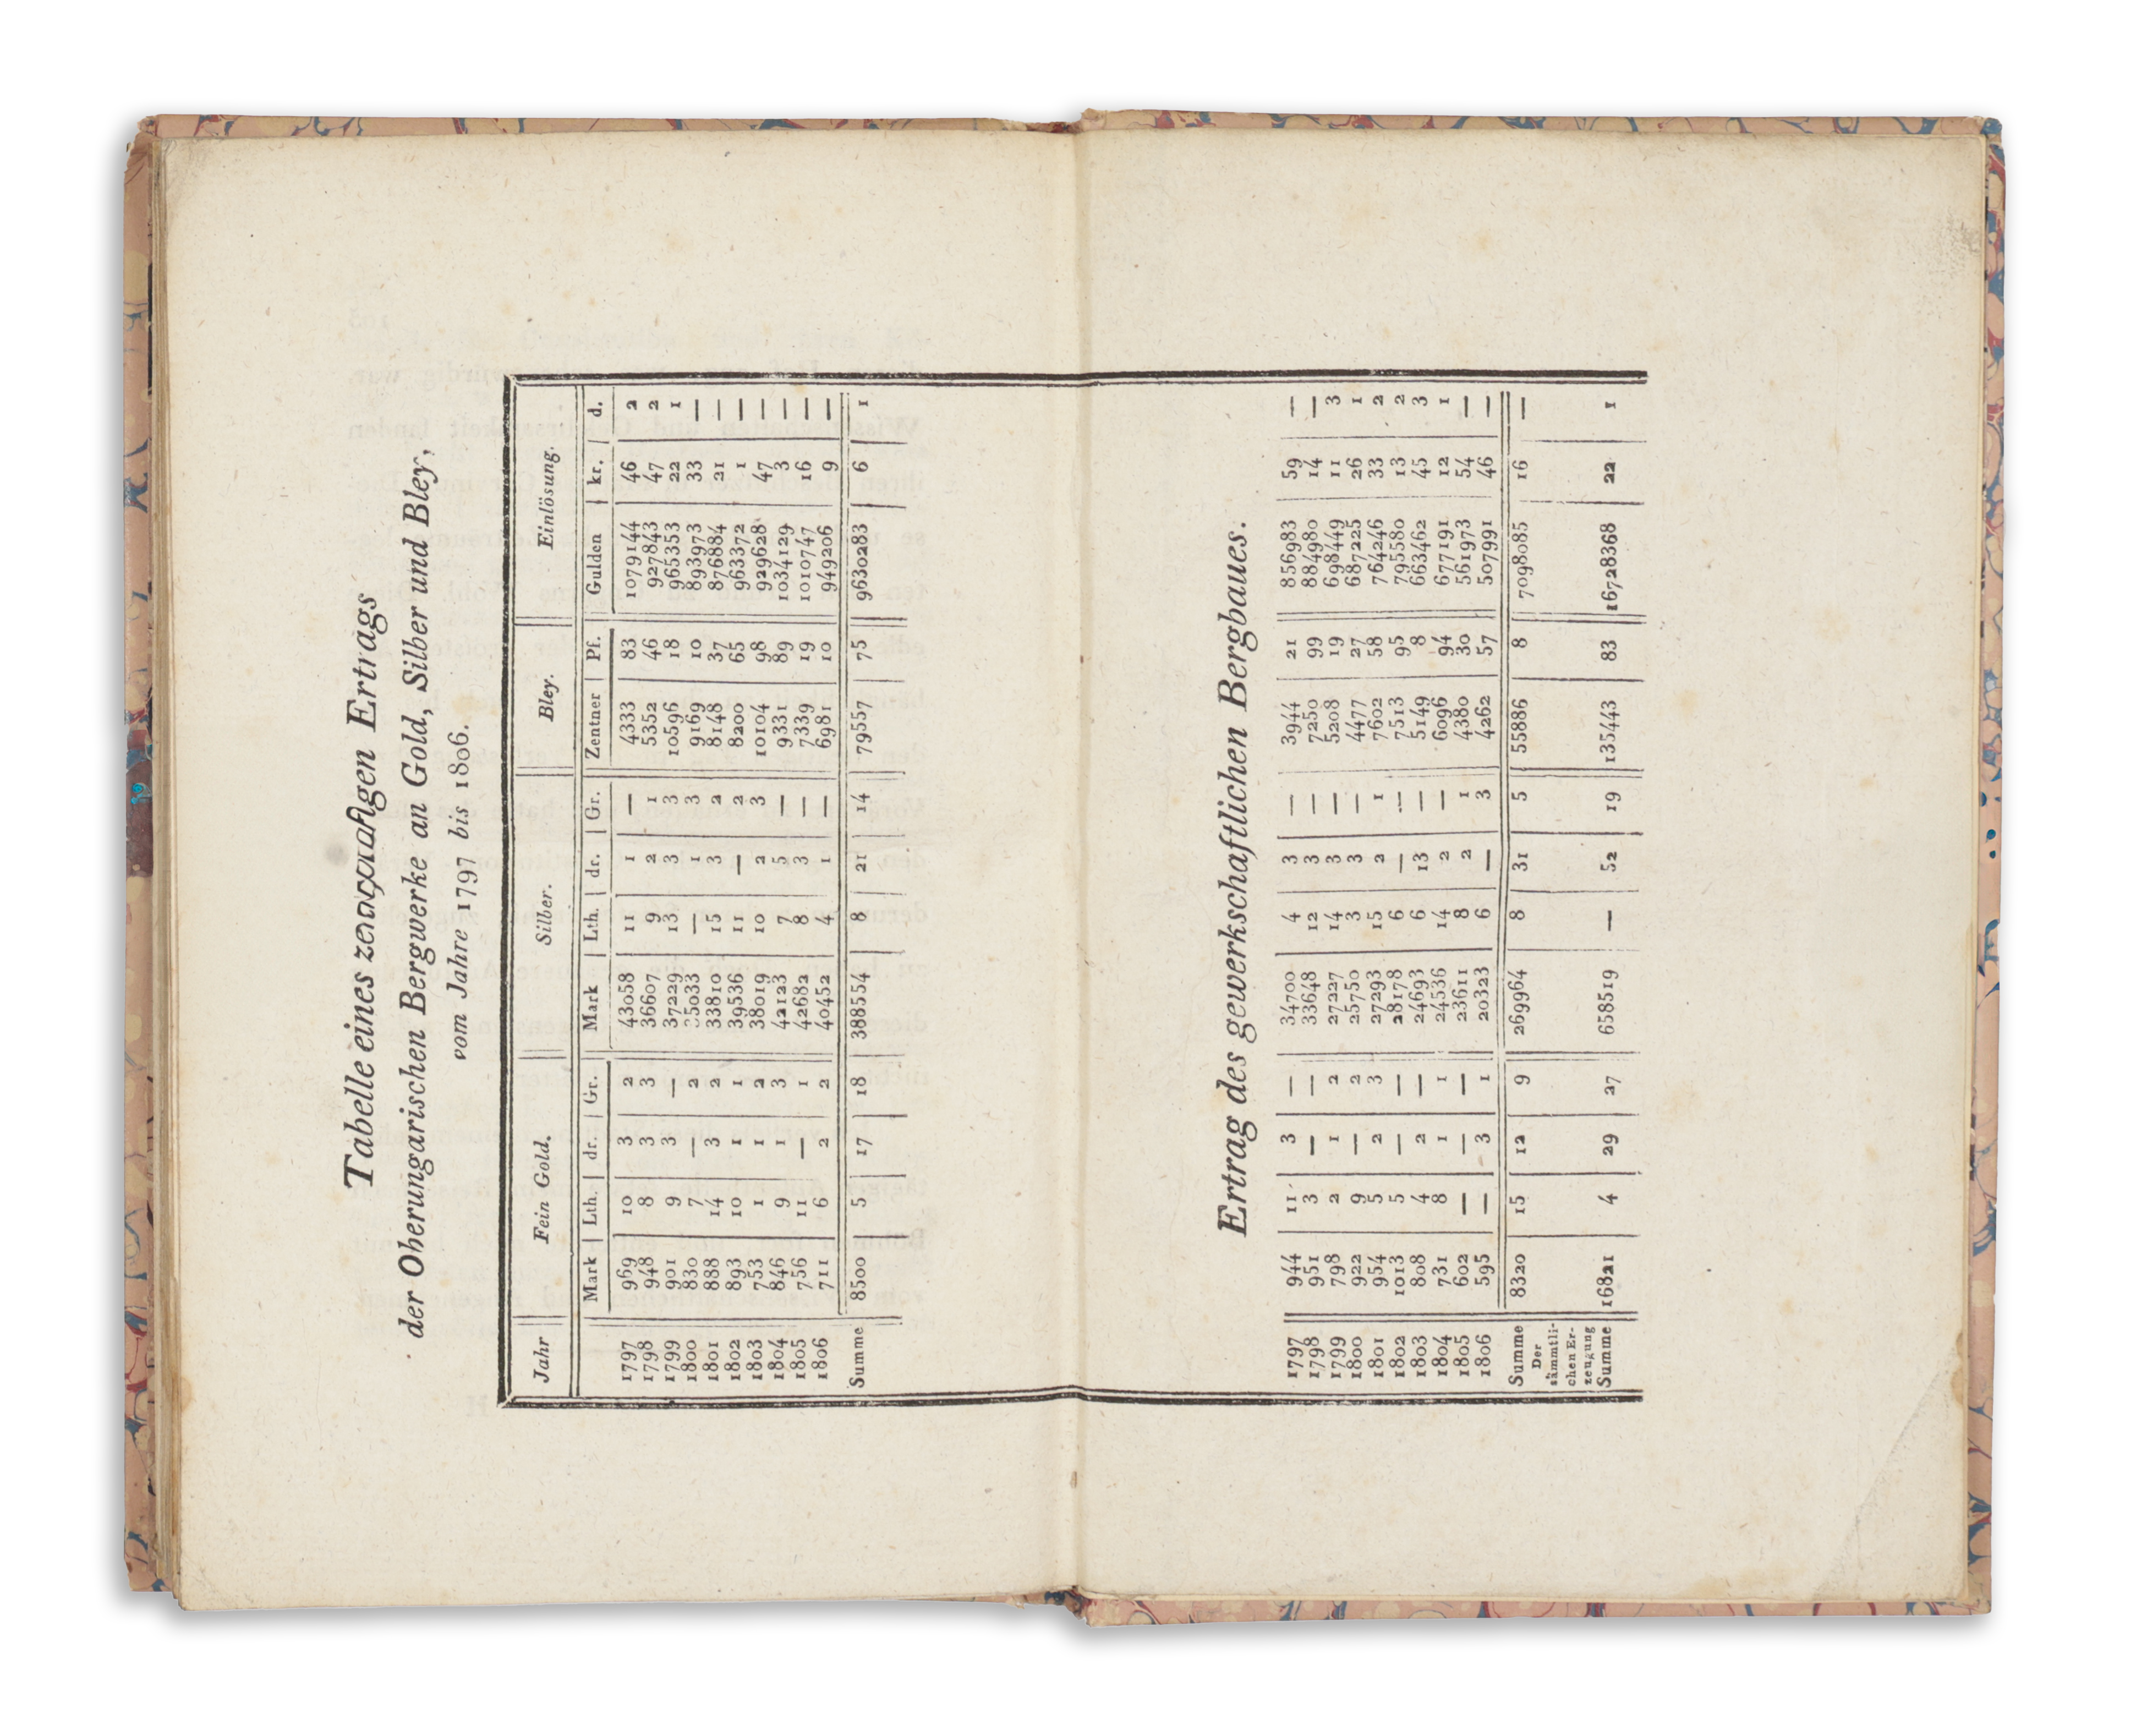 Tabelle eines Ertrags
der Oberungarischen Bergwerke an Gold, Silber und Bley,
vom Jahre 1797 bis 1806.
Jahr Fein Gold. Silber. Bley. Einlösung.
Mark Lth. dr. Gr. Mark Lth. dr. Gr. Zentner Pf. Gulden kr. d.
1797 969 10 3 2 43058 11 1 — 4333 83 1079144 46 2
1798 948 8 3 3 36607 9 2 1 5352 46 927843 47 2
1799 901 9 3 — 37229 13 3 3 10596 18 965353 22 1
1800 830 7 — 2 35033 — 1 3 9169 10 893973 33 —
1801 888 14 3 2 33810 15 3 2 8148 37 876884 21 —
1802 893 10 1 1 39536 11 — 2 8200 65 963372 1 —
1803 753 1 1 2 38019 10 2 3 10104 98 929628 47 —
1804 846 9 1 3 42123 7 5 — 9331 89 1034129 3 —
1805 756 11 — 1 42682 8 3 — 7339 19 1010747 16 —
1806 711 6 2 2 40452 4 1 — 6981 10 949206 9 —
Summe 8500 5 17 18 388554 8 21 14 79557 75 9630283 6 1
Ertrag des gewerkschaftlichen Bergbaues.
1797 944 11 3 — 34700 4 3 — 3944 21 856983 59 —
1798 951 3 — — 33648 12 3 — 7250 99 884980 14 —
1799 798 2 1 2 27227 14 3 — 5208 19 698449 11 3
1800 922 9 — 2 25750 3 3 — 4477 27 687225 26 1
1801 954 5 2 3 27293 15 2 1 7602 58 764246 33 2
1802 1013 5 — — 28178 6 — — 7513 95 795580 13 2
1803 808 4 2 — 24693 6 13 — 5149 8 663462 45 3
1804 731 8 1 1 24536 14 2 — 6096 94 677191 12 1
1805 602 — — — 23611 8 2 1 4380 30 561973 54 —
1806 595 — 3 1 20323 6 — 3 4262 57 507991 46 —
Summe 8320 15 12 9 269964 8 31 5 55886 8 7098085 16 —
Der
sämmtli-
chen Er-
zeugung
Summe 16821 4 29 27 658519 — 52 19 135443 83 16728368 22 1